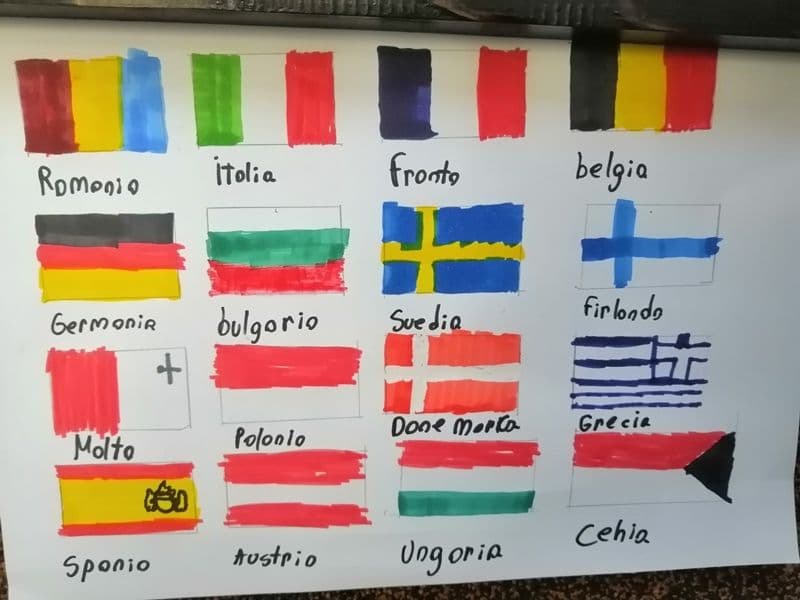 Romonio italia fronto belgia
Germonia bulgorio Suedia firlondo
Molto Polonio Done morka Grecia
Sponio Austrio Ungoria Cehia